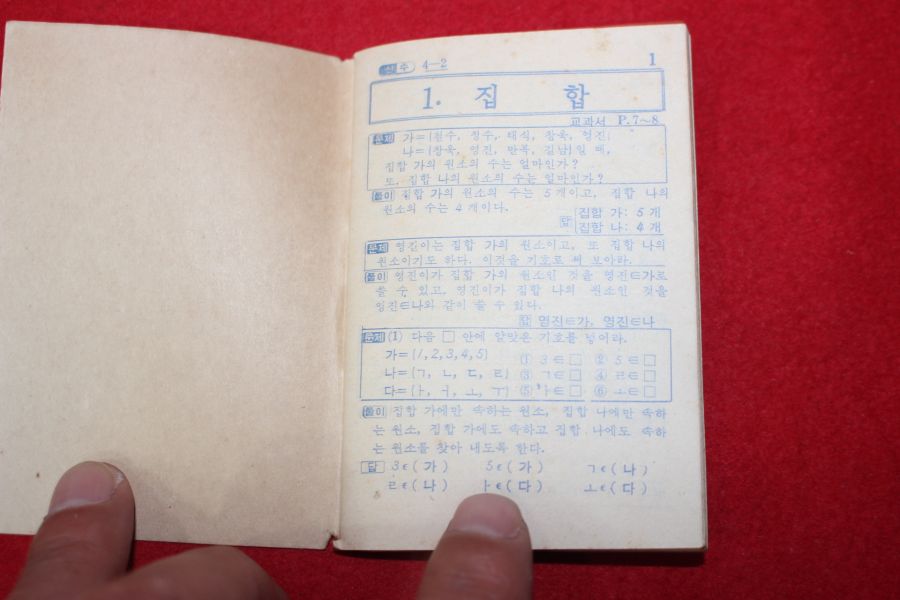 산수 4—2
1
1. 집 합
교과서 P.7~8
문제 가={철수, 정수, 태식, 창욱, 영진}
나={창욱, 영진, 만복, 길남}일 때,
집합 가의 원소의 수는 얼마인가?
또, 집합 나의 원소의 수는 얼마인가?
풀이 집합 가의 원소의 수는 5개이고, 집합 나의
원소의 수는 4개이다.
답 집합 가: 5개
집합 나: 4개
문제 영진이는 집합 가의 원소이고, 또 집합 나의
원소이기도 하다. 이것을 기호로 써 보아라.
풀이 영진이가 집합 가의 원소인 것을 영진∈가로
쓸 수 있고, 영진이가 집합 나의 원소인 것을
영진∈나와 같이 쓸 수 있다.
답 영진∈가, 영진∈나
문제 (1) 다음 □ 안에 알맞은 기호를 넣어라.
가={1, 2, 3, 4, 5} ① 3∈□ ② 5∈□
나={ㄱ, ㄴ, ㄷ, ㄹ} ③ ㄱ∈□ ④ ㄹ∈□
다={ㅏ, ㅓ, ㅗ, ㅜ} ⑤ ㅏ∈□ ⑥ ㅗ∈□
풀이 집합 가에만 속하는 원소, 집합 나에만 속하
는 원소, 집합 가에도 속하고 집합 나에도 속하
는 원소를 찾아 내도록 한다.
답 3∈(가) 5∈(가) ㄱ∈(나)
ㄹ∈(나) ㅏ∈(다) ㅗ∈(다)